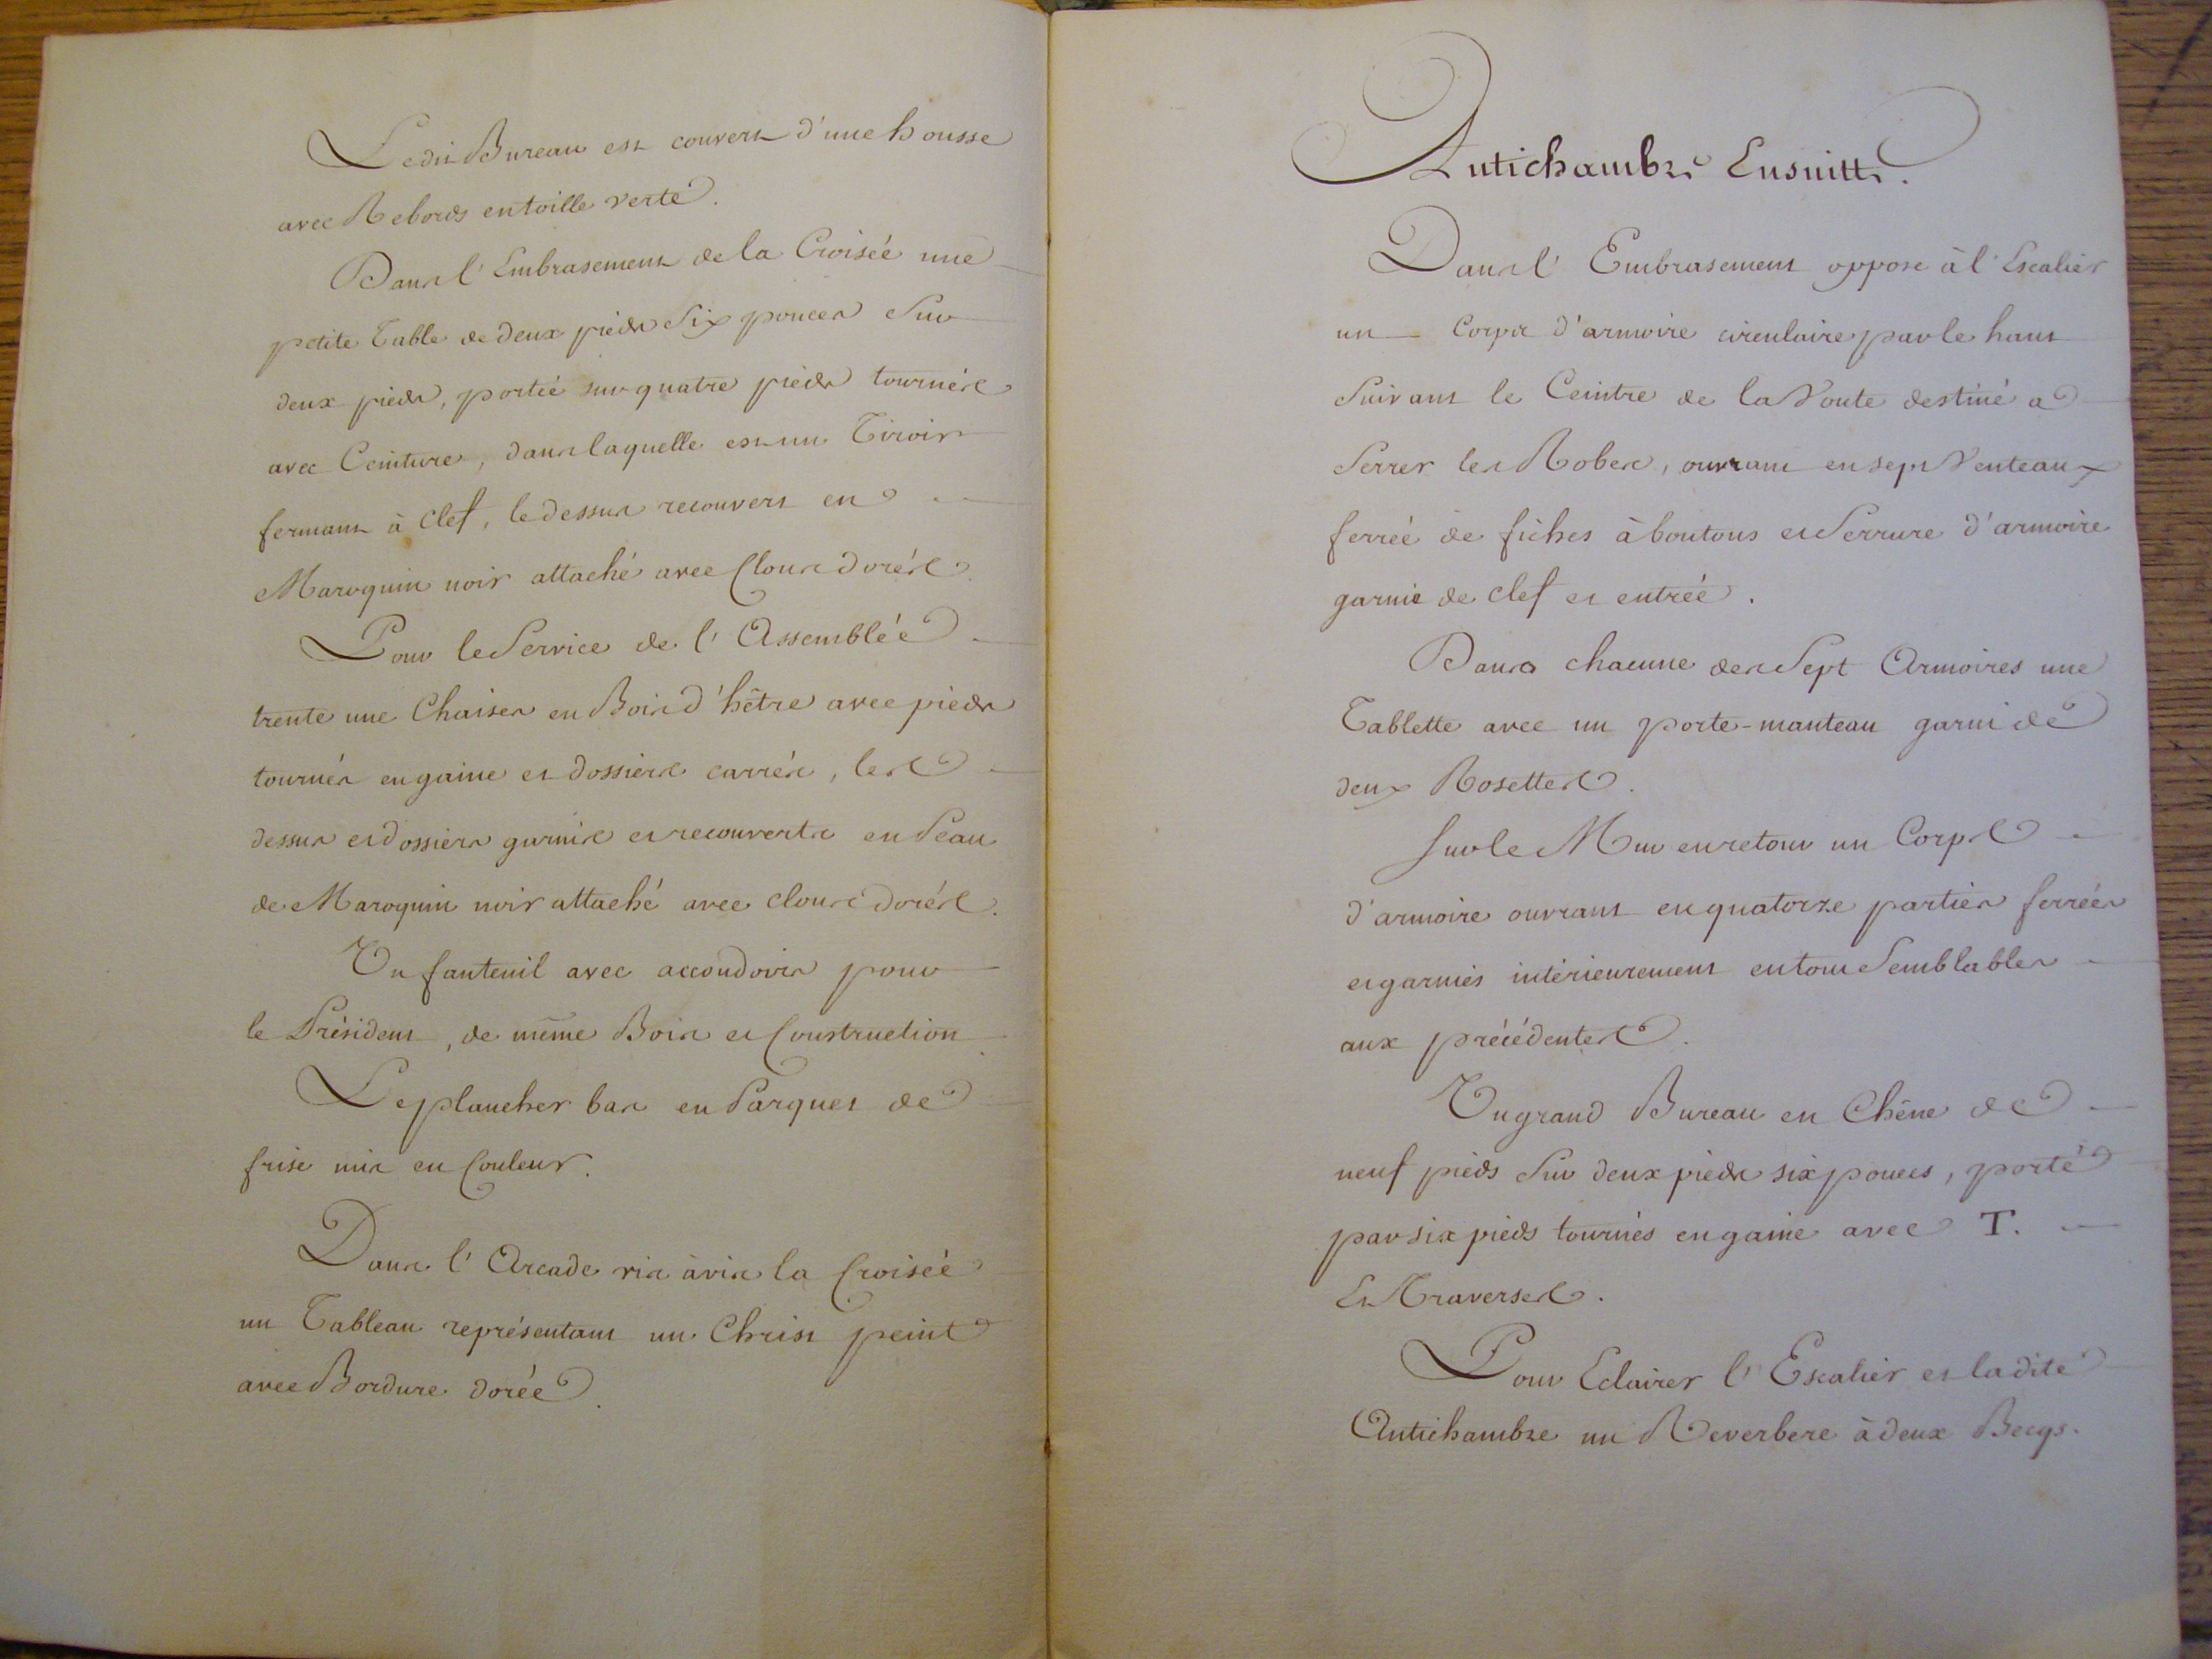 Ledit Bureau est couvert d'une housse
avec Rebords en toille verte.
Dans l'Embrasement de la Croisée une
petite Table de deux pieds Six pouces Sur
deux pieds, portée sur quatre pieds tournés
avec Ceinture, dans laquelle est un Tiroir
fermant à Clef, le dessus recouvert en
Maroquin noir attaché avec Clous dorés.
Pour le Service de l'Assemblée
trente une Chaises en Bois d'hêtre avec pieds
tournés en gaine et dossiers carrés, les
dessus et dossiers garnis et recouverts en Peau
de Maroquin noir attaché avec clous dorés.
Un fauteuil avec accoudoirs pour
le Président, de même Bois et Construction
Le plancher bas en Parquet de
frise mis en Couleur.
Dans l'Arcade vis à vis la Croisée
un Tableau représentant un Christ peint
avec Bordure dorée.
Antichambre Ensuitte.
Dans l'Embrasement oppose à l'Escalier
un Corps d'armoire circulaire par le haut
Suivant le Ceintre de la Voute destiné a
Serrer les Robes, ouvrant en sept Venteaux
ferrée de fiches à boutons et Serrure d'armoire
garnie de clef et entrée.
Dans chacune des Sept Armoires une
Tablette avec un porte-manteau garni de
deux Rosettes.
Sur le Mur en retour un Corps
d'armoire ouvrant en quatorze parties ferrées
et garnies intérieurement en tout Semblables
aux précédentes.
Un grand Bureau en Chêne de
neuf pieds Sur deux pieds six pouces, porté
par six pieds tournés en gaine avec T.
Et Traverses.
Pour Eclairer l'Escalier et ladite
Antichambre un Reverbere à deux Becqs.